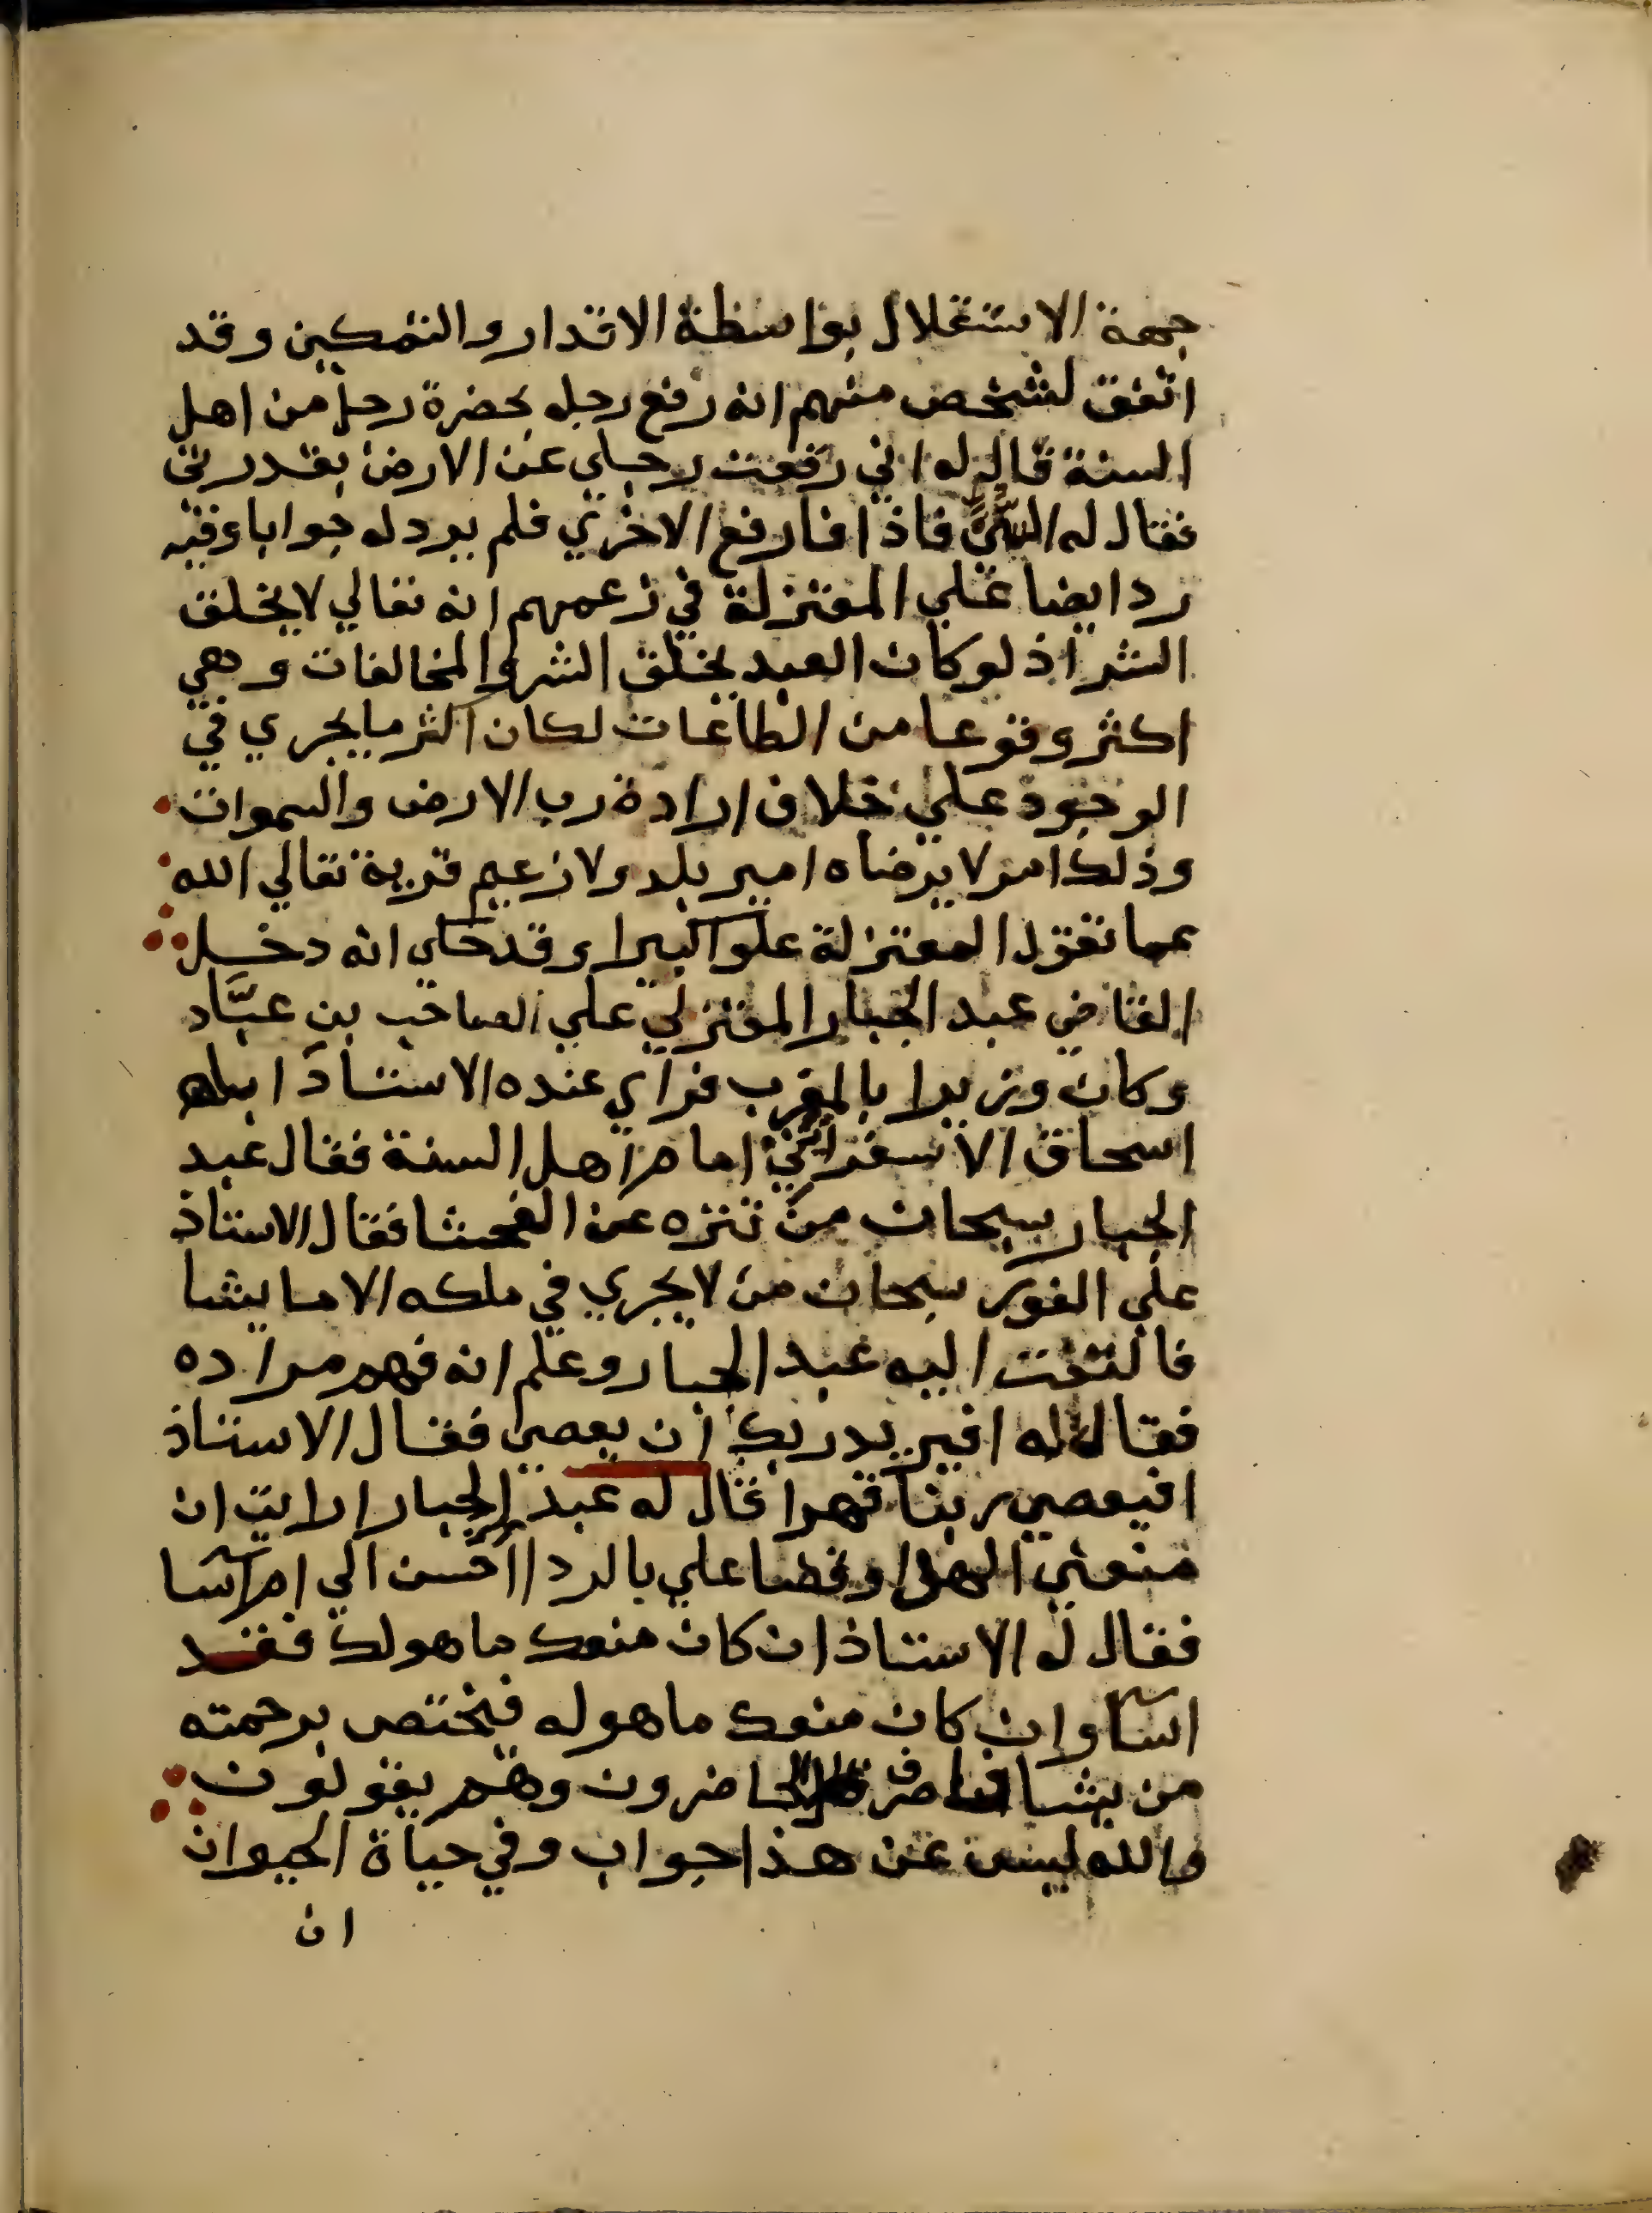 جهة الاستقلال بواسطة الاقدار والتمكين وقد
اتفق لشخص منهم انه رفع رجله بحضرة رجل من اهل
السنة قال له اني رفعت رجلي عن الارض بقدرتي
فقال له السني فاذا فارفع الاخري فلم يرد له جوابا وفيه
رد ايضا علي المعتزلة في زعمهم انه تعالي لا يخلق
الشر اذ لو كان العبد يخلق الشر والمخالفات وهي
اكثر وقوعا من الطاعات لكان اكثر ما يجري في
الوجود علي خلاف ارادة رب الارض والسموات
وذلك امر لا يرضاه امير بلد ولا زعيم قرية تعالي الله
عما تقول المعتزلة علوا كبيرا وقد حكي انه دخل
القاضي عبد الجبار المعتزلي علي الصاحب بن عبَّاد
وكان وزيرا بالمغرب فراي عنده الاستاذ ابا
اسحاق الاسفرايني امام اهل السنة فقال عبد
الجبار سبحان من تنزه عن الفحشا فقال الاستاذ
علي الفور سبحان من لا يجري في ملكه الا ما يشا
فالتفت اليه عبد الجبار وعلم انه فهم مراده
فقال له افيريد ربك ان يعصي فقال الاستاذ
افيعصي ربنا قهرا قال له عبد الجبار ارايت ان
منعني الهدا وقضا علي بالردا احسن الي ام اسا
فقال له الاستاذ ان كان منعك ما هو لك فقد
اسا وان كان منعك ما هو له فيختص برحمته
من يشا فانصرف الحاضرون وهم يقولون
والله ليس عن هذا جواب وفي حياة الحيوان
ان